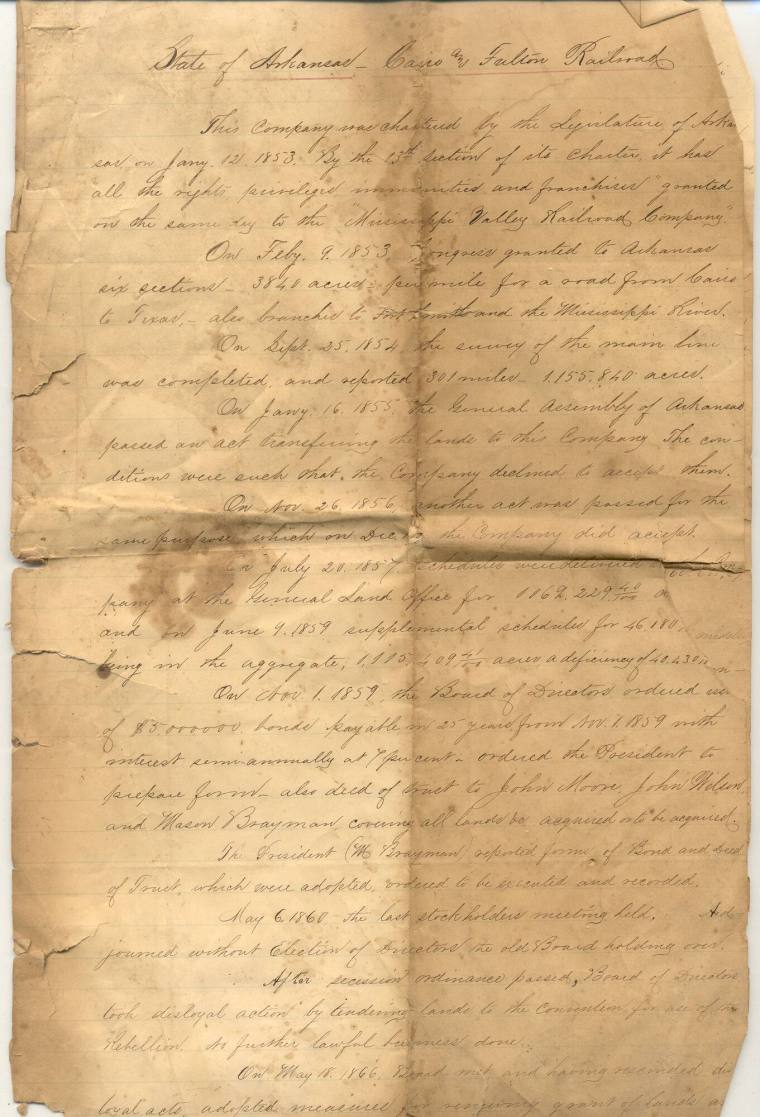 State of Arkansas - Cairo and Fulton Railroad
This Company was chartered by the Legislature of Arkan
sas on Jany. 12. 1853. By the 13th section of its charter, it has
all the rights privileges immunities and franchises "granted
on the same day to the "Mississippi Valley Railroad Company."
On Feby. 9. 1853, Congress granted to Arkansas
six sections - 3840 acres - per mile for a road from Cairo
to Texas, - also branches to Fort Smith and the Mississippi River.
On Sept. 25. 1854 the survey of the main line
was completed, and reported 301 miles - 1.155.840 acres.
On Jany. 16. 1855, the General Assembly of Arkansas
passed an act transfering the lands to this Company The con-
ditions were such that, the Company declined to accept them.
On Nov. 26. 1856, another act was passed for the
same purpose which on Dec. the Company did accept.
On July 20. 1857 schedules were delivered
pany at the General Land Office for 1069.229 40/100 a
and on June 9. 1859 supplemental schedules for 46.180
being in the aggregate, 1.115.409 acres a deficiency of 40.430
On Nov. 1. 1859, the Board of Directors ordered
of $5.000000 bonds payable in 25 years from Nov. 1. 1859 with
interest semi-annually at 7 per cent - ordered the President to
prepare form - also deed of trust to John Moore, John Wilson,
and Mason Brayman, covering all lands &c acquired or to be acquired.
The President (M Brayman) reported forms of Bond and deed
of Trust, which were adopted, ordered to be executed and recorded.
May 6. 1860 - the last stockholders meeting held. Ad-
journed without Election of Directors, the old Board holding over.
After secession ordinance passed, Board of Directors
took disloyal action by tendering lands to the Convention for use of the
Rebellion. No further lawful business done.
On May 18. 1866, Board met and having rescinded dis
loyal acts, adopted measures for renewing grant of lands